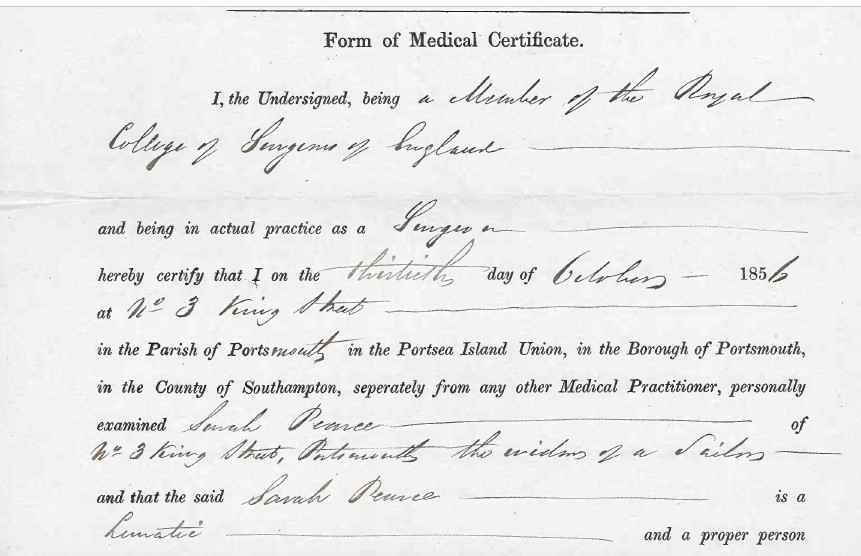 Form of Medical Certificate.
I, the Undersigned, being a Member of the Royal
College of Surgeons of England
and being in actual practice as a Surgeon
hereby certify that I on the thirtieth day of October 1856
at No 3 King Street
in the Parish of Portsmouth in the Portsea Island Union, in the Borough of Portsmouth,
in the County of Southampton, seperately from any other Medical Practitioner, personally
examined Sarah Pearce of
No 3 King Street, Portsmouth the widow of a Sailor
and that the said Sarah Pearce is a
Lunatic and a proper person